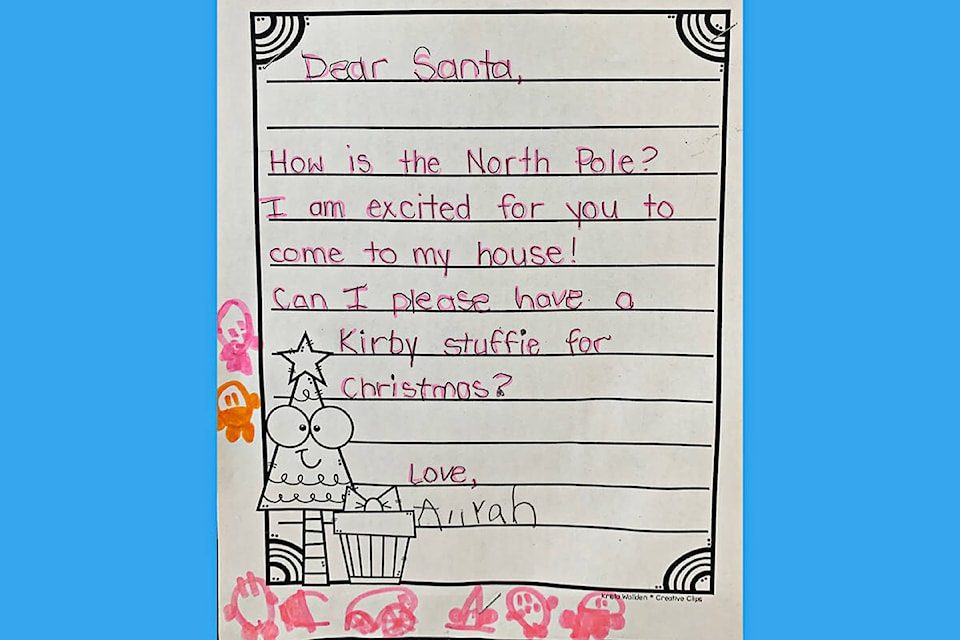 Dear Santa,
How is the North Pole?
I am excited for you to
come to my house!
Can I please have a
Kirby stuffie for
Christmas?
Love,
Creative Clips